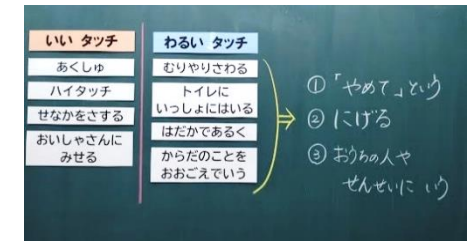 いい タッチ
あくしゅ
ハイタッチ
せなかをさする
おいしゃさんに
みせる
わるい タッチ
むりやりさわる
トイレに
いっしょにはいる
はだかであるく
からだのことを
おおごえでいう
①「やめて」という
②にげる
③おうちの人や
せんせいに いう